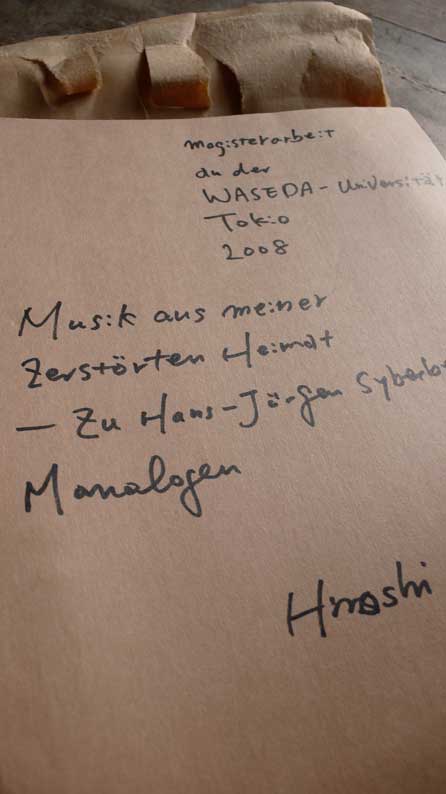 Magisterarbeit
an der
WASEDA-Universität
Tokio
2008
Musik aus meiner
Zerstörten Heimat
— Zu Hans-Jürgen Syberb
Monologen
Hiroshi